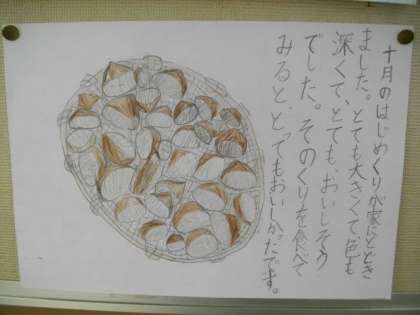 十月のはじめくりが家にとどき
ました。とても大きくて色も
深くて、とても、おいしそう
でした。そのくりを食べて
みると、とってもおいしかったです。